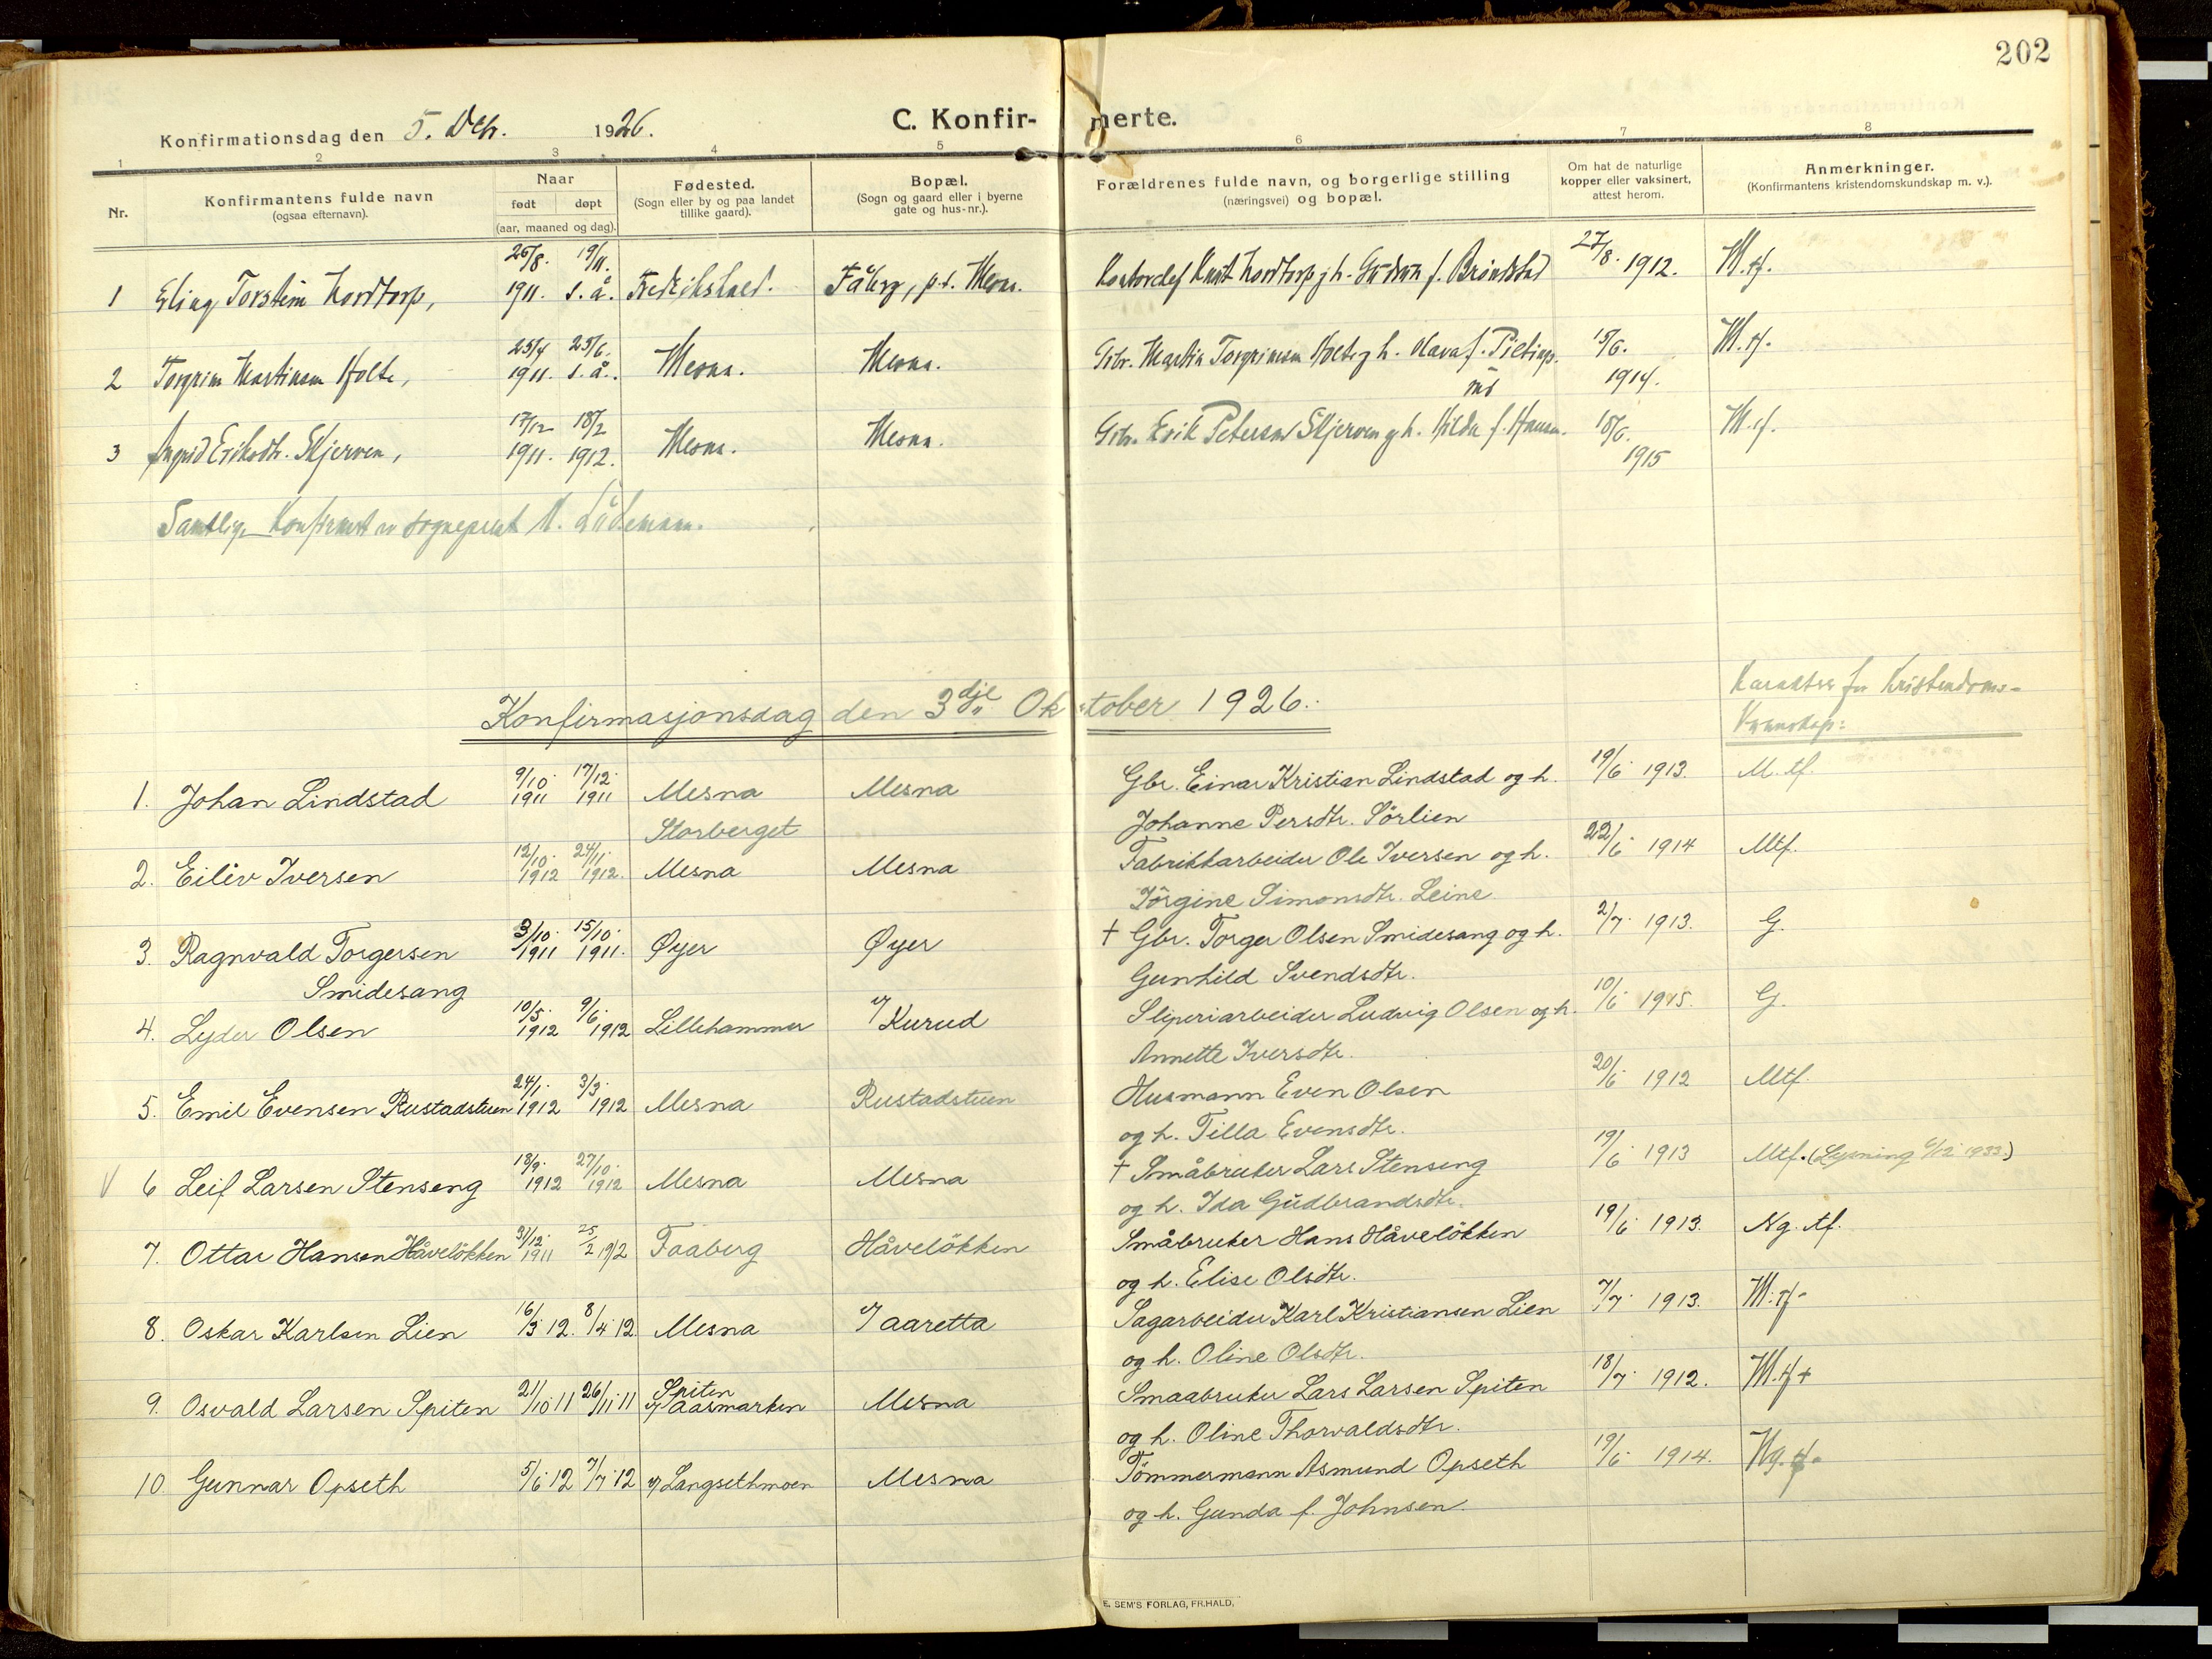 202
Konfirmationsdag den 5. 1926.
C. Konfirmerte.
1 2 3 4 5 6 7 8
Nr.
Konfirmantens fulde navn
(ogsaa efternavn).
Naar
født døpt
(aar, maaned og dag).
Fødested.
(Sogn eller by og paa landet
tillike gaard).
Bopæl.
(Sogn og gaard eller i byerne
gate og hus-nr.).
Forældrenes fulde navn, og borgerlige stilling
(næringsvei) og bopæl.
Om hat de naturlige
kopper eller vaksinert,
attest herom.
Anmerkninger.
(Konfirmantens kristendomskundskap m. v.).
25/8. 19/11. 27/8. 1912. M. tf.
1 Erling Torstein Nordtorp, 1911. s. å. Fredrikshald. Fåberg, p.t. Mesna. Kontorchef Knut Nordtorp og h. Gudrun f. Brindstad
25/4 25/6. 15/6. M. tf.
2 Torgrim Martinsen Holte, 1911. s. å. Mesna. Mesna. Gbr. Martin Torgrimsen Holte og h. Olava f.
1914.
17/12 18/2 15/6. M. tf.
3 Ingrid Eriksdtr. Skjerven, 1911. 1912. Mesna. Mesna. Gbr. Erik Petersen Skjerven og h. Hilda f. Hansen.
1915
Samtlige konfirmert av sogneprest
Konfirmasjonsdag den 3dje Oktober 1926.
Karakter for Kristendoms-
kunnskap:
1. Johan Lindstad 9/10 1911 17/12 1911 Mesna Mesna Gbr. Einar Kristian Lindstad og h. 19/6 1913. M. tf.
Storberget Johanne Persdtr. Sörlien
2. Eiliv Iversen 12/10 1912 24/11 1912. Mesna Mesna Fabrikkarbeider Ole Iversen og h. 22/6 1914 Mtf.
Jörgine Simonsdtr. Leine
3. Ragnvald Torgersen 3/10 1911 15/10 1911. Øyer Øyer † Gbr. Torger Olsen Smidesang og h. 2/7 1913. G.
Smidesang Gunhild Svendsdtr.
4. Lyder Olsen 10/5 1912 9/6 1912 Lillehammer v/Kurud Sliperiarbeider Ludvig Olsen og h. 10/6 1915. G.
Annette Iversdtr.
5. Emil Evensen Rustadstuen 24/1 1912 3/3 1912 Mesna Rustadstuen Husmann Even Olsen 20/6 1912 Mtf.
og h. Tilla Evensdtr.
V 6 Leif Larsen Stenseng 18/9 1912 27/10 1912 Mesna Mesna † Småbruker Lars Stenseng 19/6 1913 Mtf. (Lysning 6/12 1933)
og h. Ida Gudbrandsdtr.
7. Ottar Hansen Håvelökken 31/12 1911 25/2 1912 Faaberg Håvelökken Småbruker Hans Håvelökken 19/6 1913. Ng. tf.
og h. Elise Olsdtr.
8. Oskar Karlsen Lien 16/3 12. 8/4 12. Mesna v/aaretta Sagarbeider Karl Kristiansen Lien 7/7 1913. M. tf-
og h. Oline Olsdtr.
9. Osvald Larsen Spiten 21/10 11 26/11 11 Spiten v/Aasmarken Mesna Smaabruker Lars Larsen Spiten 18/7 1912. M. tf +
og h. Oline Thorvaldsdtr.
10 Gunnar Opseth 5/6 12 7/7 12 v/Langsethmoen Mesna Tömmermann Asmund Opseth 19/6 1914. Ng. tf.
og h. Gunda f. Johnsen.
E. SEM'S FORLAG, FR.HALD.